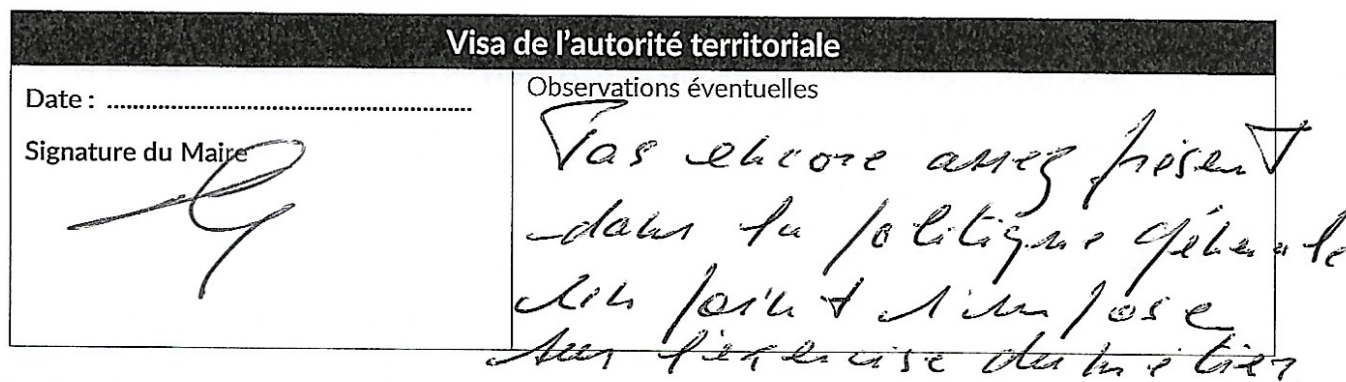 Visa de l'autorité territoriale
Date : ....................................................
Signature du Maire
Observations éventuelles
Pas encore assez présent
dans la politique générale
Un point s'impose
sur l'exercice du métier